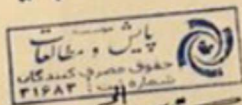 موسسه
پایش و مطالعات
حقوق مصرف کنندگان
شماره ثبت: ۳۱۶۸۳